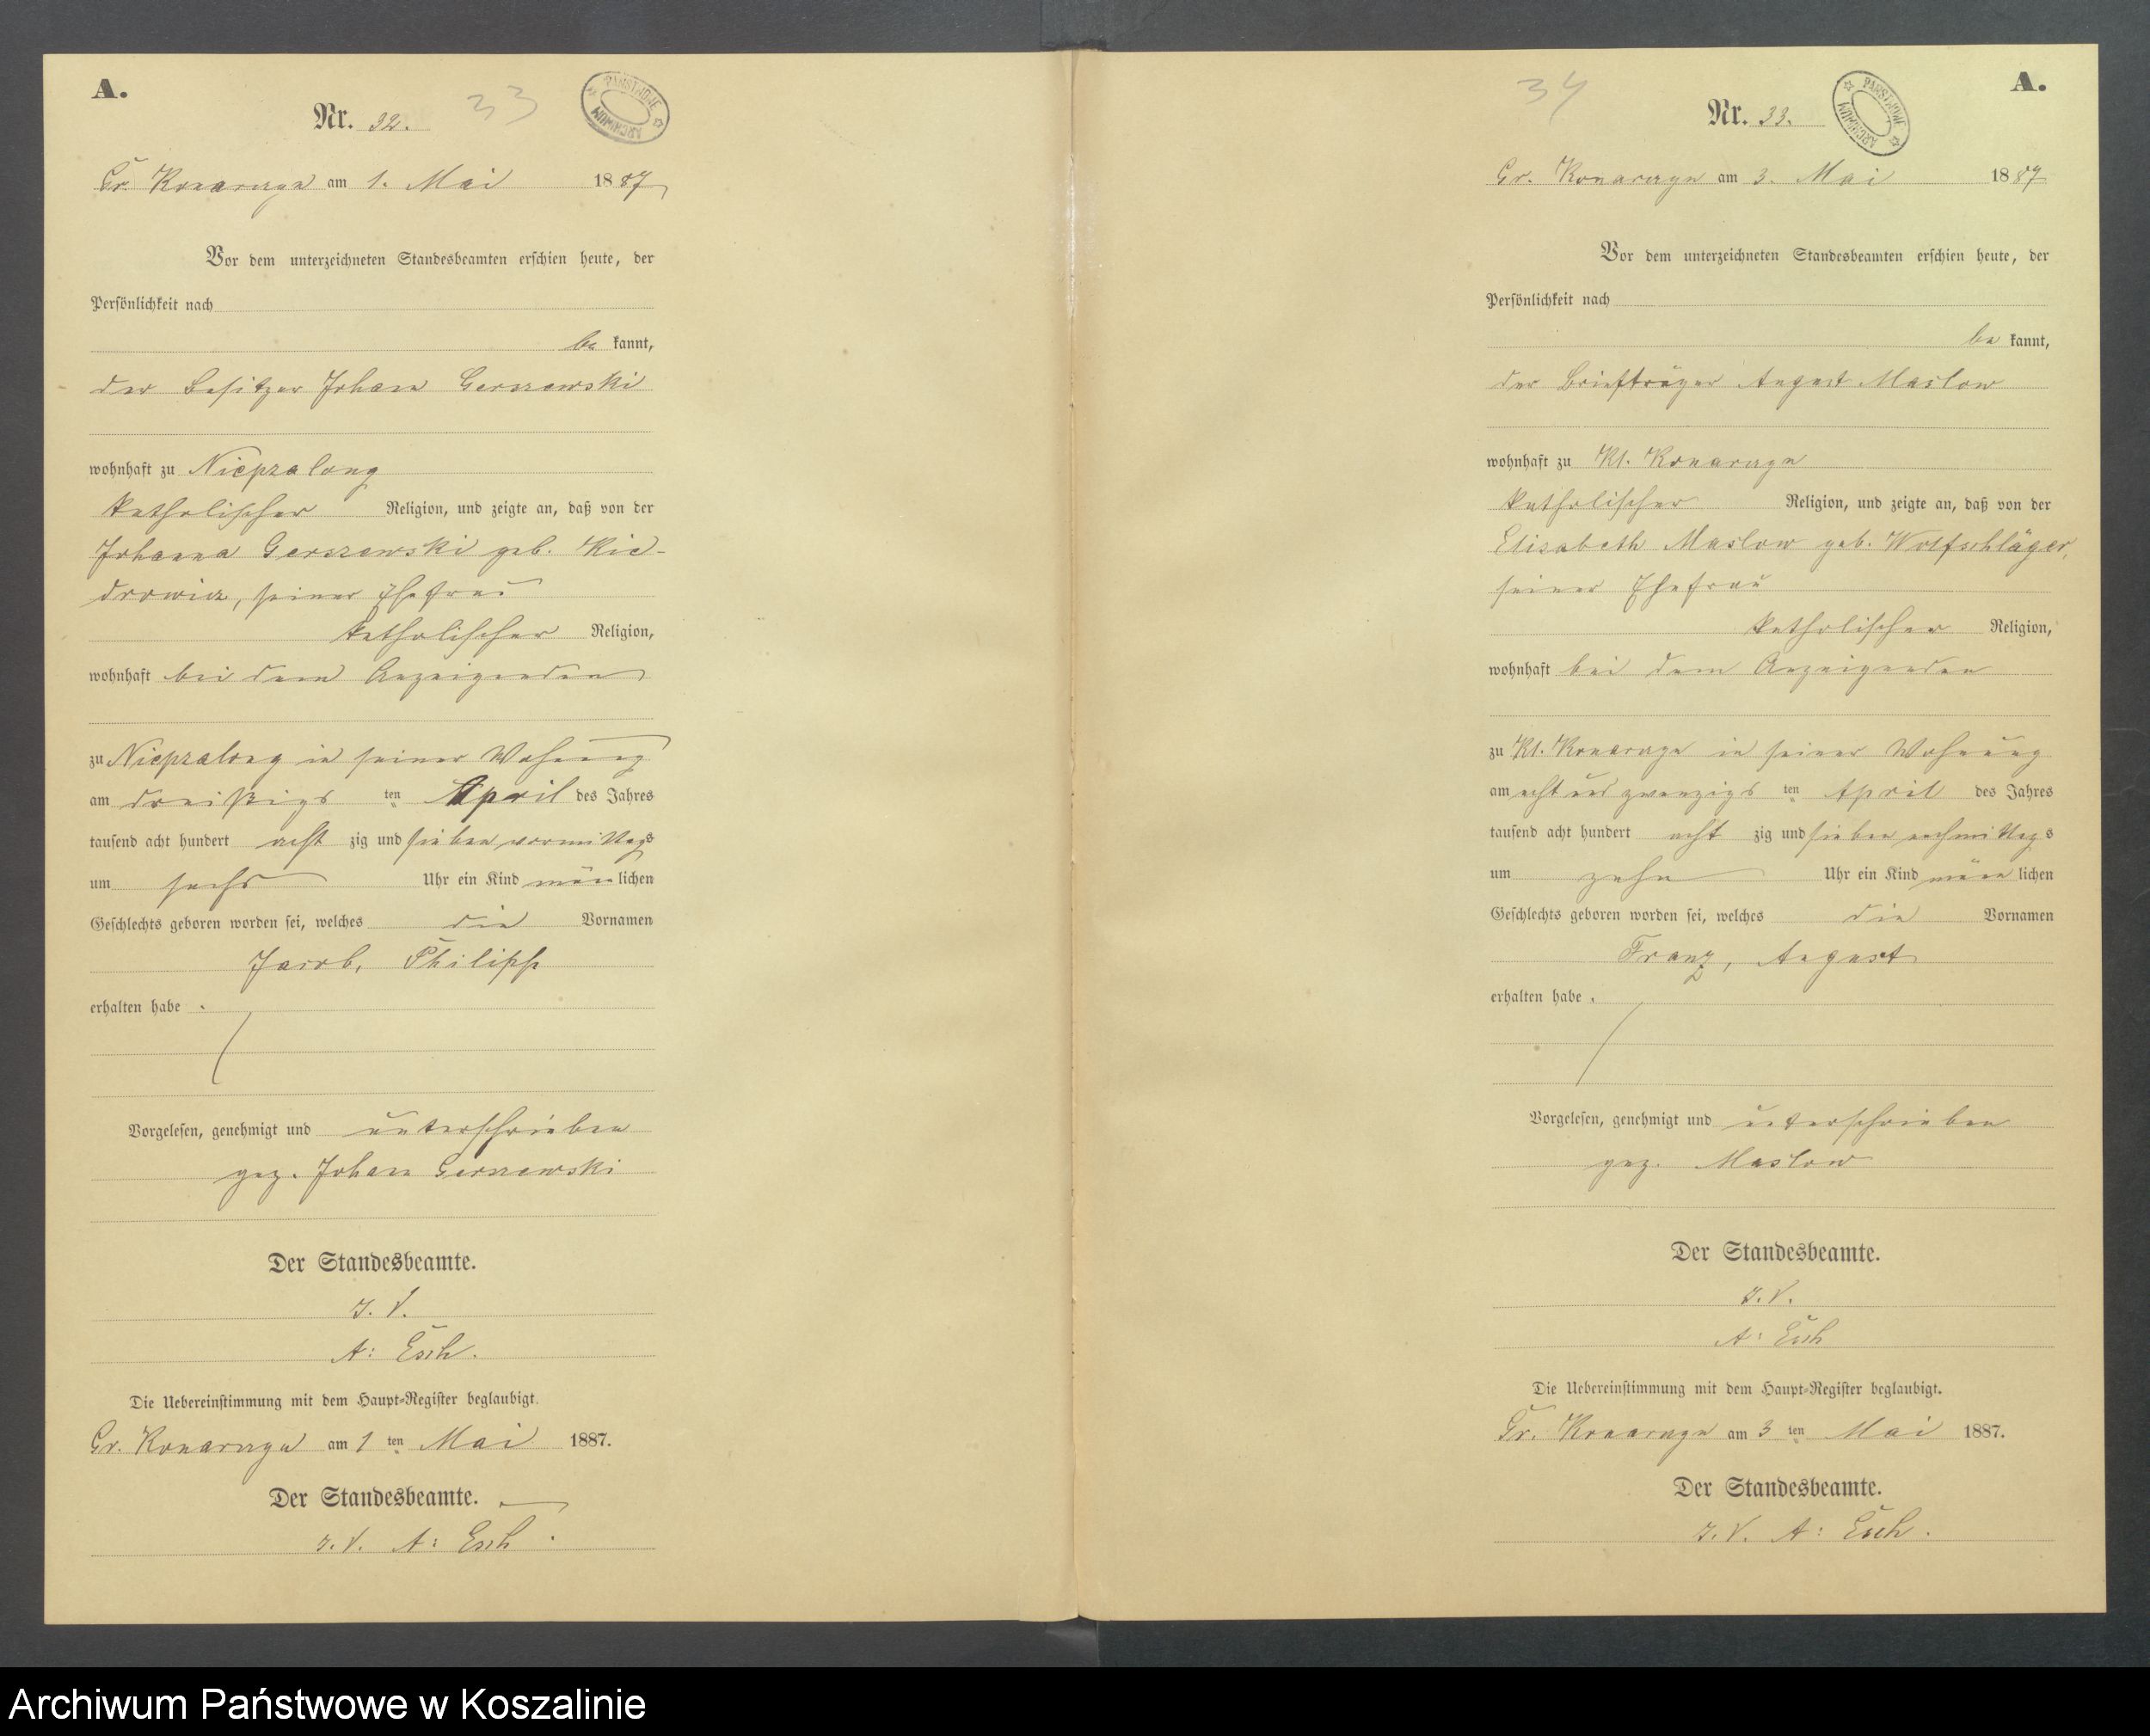 A.
Nr. 32.
33
PAŃSTWOWE ARCHIWUM
Gr. Konarczyn am 1. Mai 1887
Vor dem unterzeichneten Standesbeamten erschien heute, der
Persönlichkeit nach
be kannt,
der Besitzer Johann
wohnhaft zu Niepszalong
katholischer Religion, und zeigte an, daß von der
Johanna geb.
seiner Ehefrau
katholischer Religion,
wohnhaft bei dem Anzeigenden
zu Niepszalong in seiner Wohnung
am dreißigs ten April des Jahres
tausend acht hundert acht zig und sieben vormittags
um sechs Uhr ein Kind männlichen
Geschlechts geboren worden sei, welches die Vornamen
Jacob, Philipp
erhalten habe.
Vorgelesen, genehmigt und unterschrieben
gez. Johann
Der Standesbeamte.
J. V.
A: Esch.
Die Uebereinstimmung mit dem Haupt-Register beglaubigt.
Gr. Konarczyn am 1 ten Mai 1887.
Der Standesbeamte.
J. V. A: Esch.
34
A.
Nr. 33.
PAŃSTWOWE ARCHIWUM
Gr. Konarczyn am 3. Mai 1887
Vor dem unterzeichneten Standesbeamten erschien heute, der
Persönlichkeit nach
be kannt,
der Briefträger August Maslow
wohnhaft zu Kl. Konarczyn
katholischer Religion, und zeigte an, daß von der
Elisabeth Maslow geb. Wolfschläger,
seiner Ehefrau
katholischer Religion,
wohnhaft bei dem Anzeigenden
zu Kl. Konarczyn in seiner Wohnung
am acht und zwanzigs ten April des Jahres
tausend acht hundert acht zig und sieben nachmittags
um zehn Uhr ein Kind männlichen
Geschlechts geboren worden sei, welches die Vornamen
Franz, August
erhalten habe.
Vorgelesen, genehmigt und unterschrieben
gez. Maslow
Der Standesbeamte.
J. V.
A: Esch
Die Uebereinstimmung mit dem Haupt-Register beglaubigt.
Gr. Konarczyn am 3 ten Mai 1887.
Der Standesbeamte.
J. V. A: Esch.
Archiwum Państwowe w Koszalinie